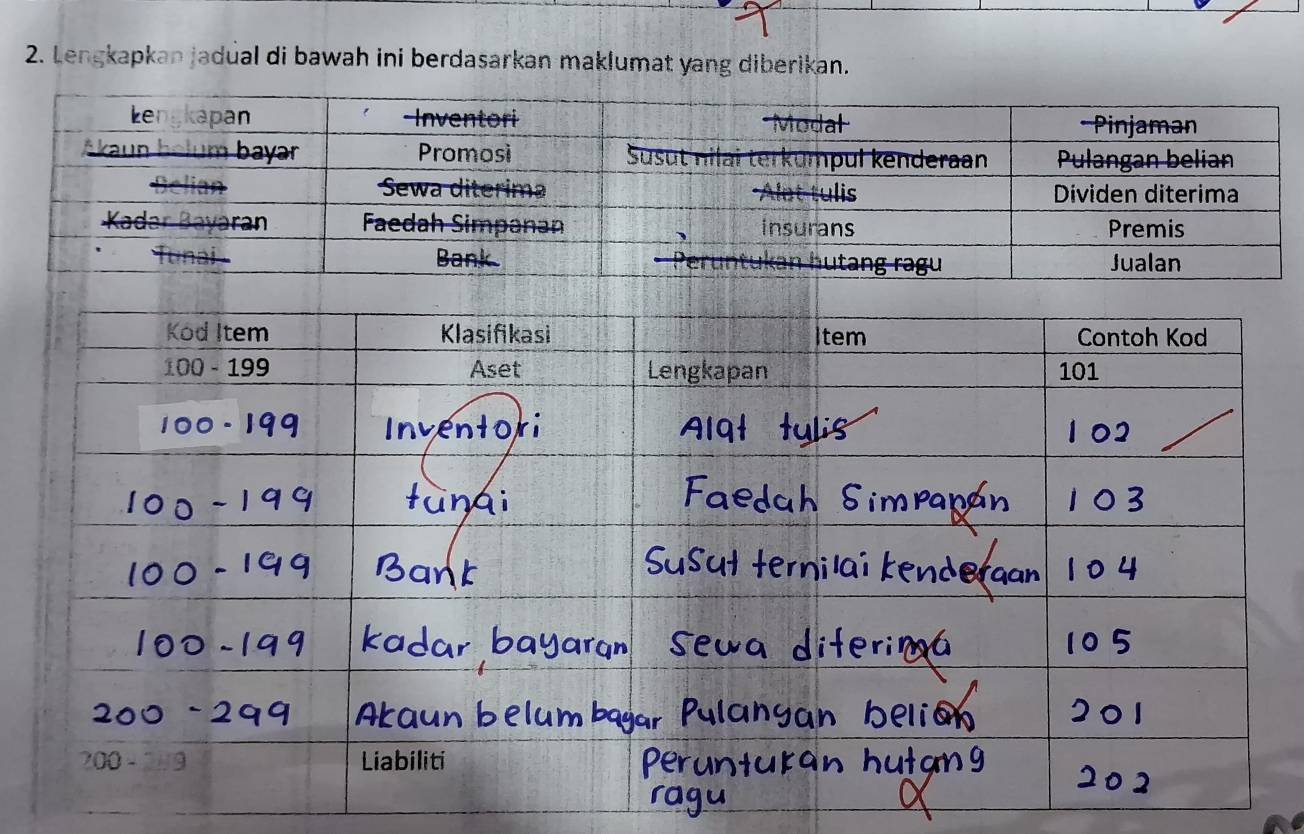 2. Lengkapkan jadual di bawah ini berdasarkan maklumat yang diberikan.
Lengkapan Inventori Modal Pinjaman
Akaun belum bayar Promosi Susut nilai terkumpul kenderaan Pulangan belian
Belian Sewa diterima Alat tulis Dividen diterima
Kadar Bayaran Faedah Simpanan insurans Premis
Tunai Bank Peruntukan hutang ragu Jualan
Kod Item Klasifikasi Item Contoh Kod
100 - 199 Aset Lengkapan 101
100 - 199 Inventori Alat tulis 102
100 - 199 tunai Faedah Simpanan 103
100 - 199 Bank Susut ternilai kenderaan 104
100 - 199 kadar bayaran sewa diterima 105
200 - 299 Akaun belum bayar Pulangan belian 201
200 - 299 Liabiliti Peruntukan hutang
ragu 202